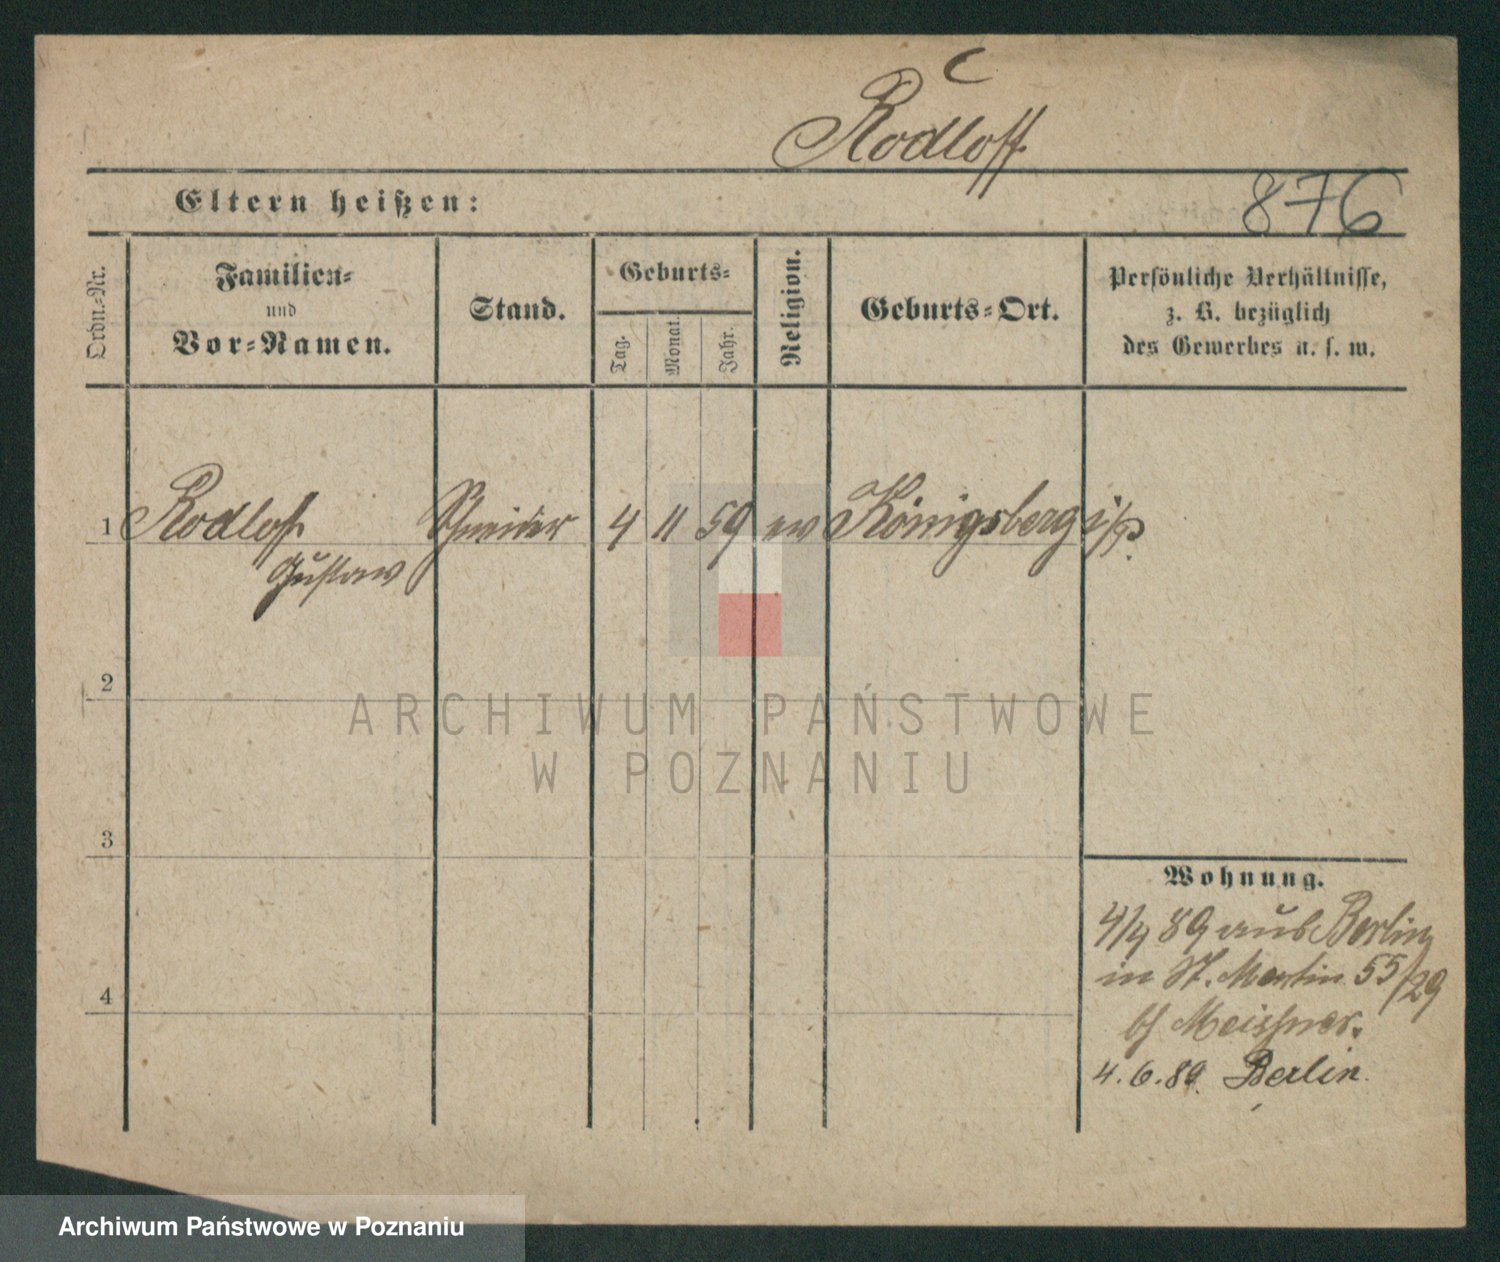 C
Rodloff
Eltern heißen:
876
Ordn.-Nr.
Familien-
und
Vor-Namen.
Stand.
Geburts-
Tag.
Monat.
Jahr.
Religion.
Geburts-Ort.
Persönliche Verhältnisse,
z. B. bezüglich
des Gewerbes u. s. w.
1 Rodloff Schneider 4 11 59 ev Königsberg i/P.
Gustav
2
ARCHIWUM PAŃSTWOWE
W POZNANIU
3
Wohnung.
4/4 89 aus Berlin
in St. Martin 55/29
4
bei Meissner.
4.6.89 Berlin.
Archiwum Państwowe w Poznaniu